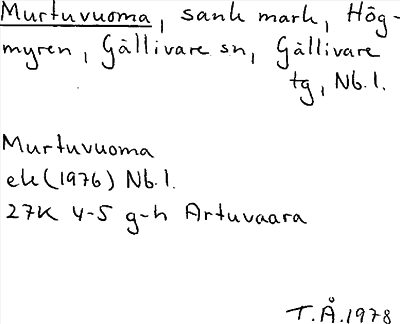 Murtuvuoma, sank mark, Hög-
myren, Gällivare sn, Gällivare
tg, Nb.l.
Murtuvuoma
ek (1976) Nb.l.
27K 4-5 g-h Artuvaara
T.Å.1978